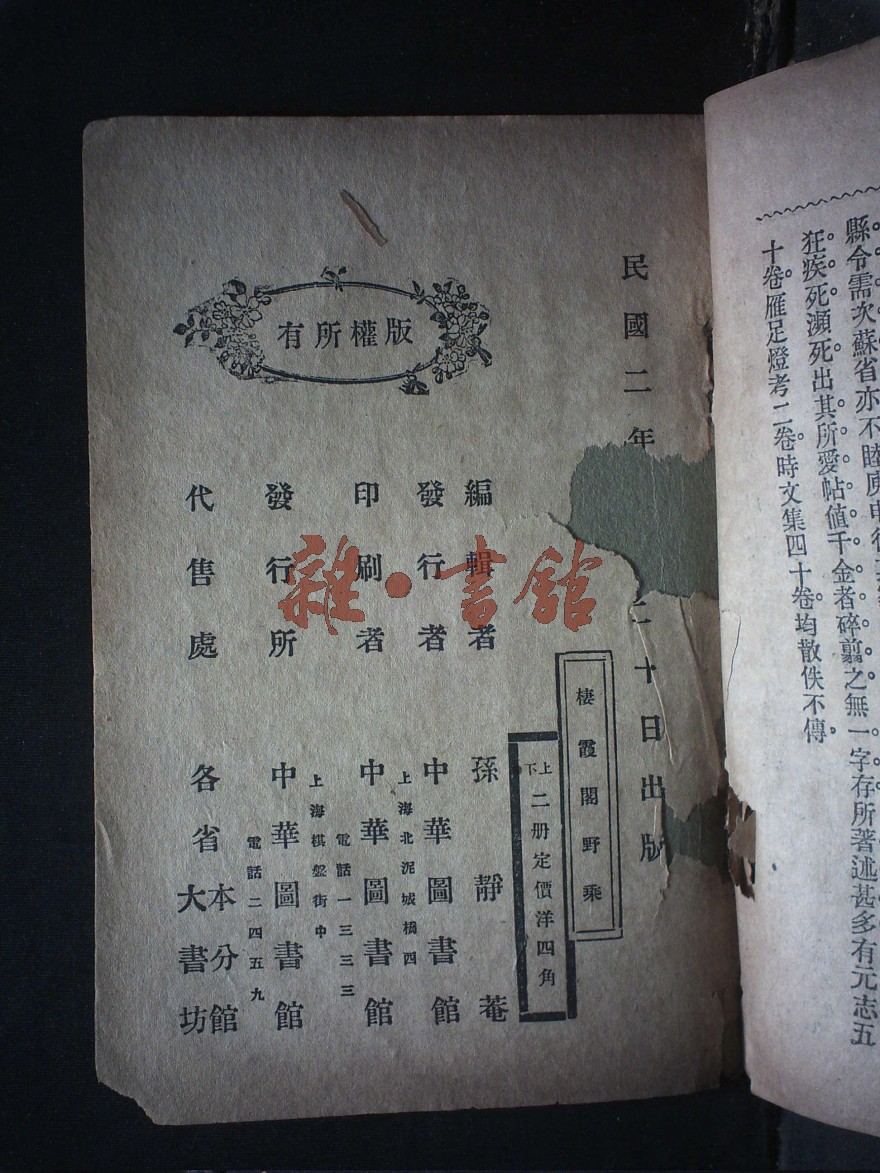 縣令需次蘇省亦不睦庚申
狂疾死瀕死出其所愛帖值千金者碎翦之無一字存所著述甚多有元志五
十卷雁足燈考二卷時文集四十卷均散佚不傳。
民國二年
二十日出版
棲霞閣野乘
上下二册定價洋四角
版權所有
編輯者 孫靜菴
發行者 中華圖書館
上海北泥城橋四
印刷者 中華圖書館
電話一三三三
上海棋盤街中
發行所 中華圖書館
電話二四五九
代售處 各省本分館大書坊
雜·書館